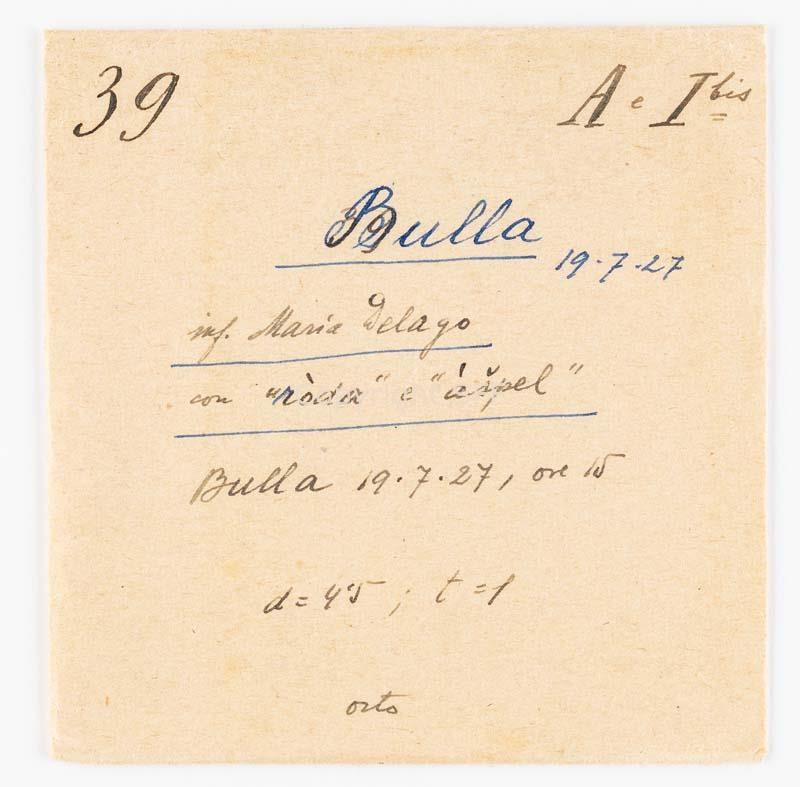 39
A e I bis
Bulla
19·7·27
inf. Maria Delago
con "ròda" e "ášpel"
Bulla 19·7·27, ore 15
d = 45 ; t = 1
orto